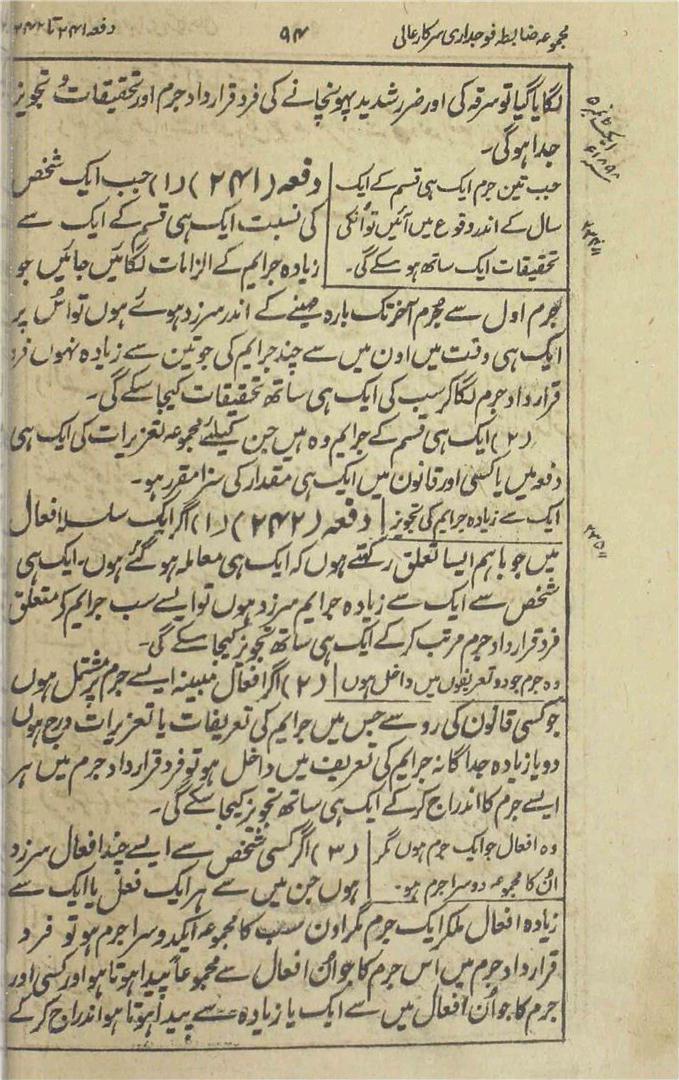 مجموعہ ضابطہ فوجداری سرکار عالی
۹۴
دفعہ ۲۴۱ تا ۲۴۲
لگایا گیا تو سرقہ کی اور ضرر شدید پہونچانے کی فرد قرار داد جرم اور تحقیقات و تجویز
جدا ہوگی۔
جب تین جرم ایک ہی قسم کے ایک
سال کے اندر وقوع میں آئیں تو اُنکی
تحقیقات ایک ساتھ ہو سکے گی۔
دفعہ (۲۴۱) (۱) جب ایک شخص
کی نسبت ایک ہی قسم کے ایک سے
زیادہ جرایم کے الزامات لگائیں جائیں جو
جرم اول سے جُرم آخر تک بارہ مہینے کے اندر سرزد ہوئے ہوں تو اُس پر
ایک ہی وقت میں اون میں سے چند جرایم کی جو تین سے زیادہ نہوں فرد
قرار داد جرم لگا کر سب کی ایک ہی ساتھ تحقیقات کیجا سکے گی۔
(۲) ایک ہی قسم کے جرایم وہ ہیں جن کیلئے مجموعہ تعزیرات کی ایک ہی
دفعہ میں یا کسی اور قانون میں ایک ہی مقدار کی سزا مقرر ہو۔
ایک سے زیادہ جرایم کی تجویز
دفعہ (۲۴۲) (۱) اگر ایک سلسلہ افعال
میں جو باہم ایسا تعلق رکھتے ہوں کہ ایک ہی معاملہ ہو گئے ہوں۔ ایک ہی
شخص سے ایک سے زیادہ جرایم سرزد ہوں تو ایسے سب جرایم کے متعلق
فرد قرار داد جرم مرتب کر کے ایک ہی ساتھ تجویز کیجا سکے گی۔
وہ جرم جو دو تعریفوں میں داخل ہوں
(۲) اگر افعال مبینہ ایسے جرم پر مشتمل ہوں
جو کسی قانون کی رو سے جس میں جرایم کی تعریفات یا تعزیرات درج ہوں
دو یا زیادہ جداگانہ جرایم کی تعریف میں داخل ہو تو فرد قرار داد جرم میں ہر
ایسے جرم کا اندراج کر کے ایک ہی ساتھ تجویز کیجا سکے گی۔
وہ افعال جو ایک جرم ہوں مگر
اُن کا مجموعہ دوسرا جرم ہو۔
(۳) اگر کسی شخص سے ایسے چند افعال سرزد
ہوں جن میں سے ہر ایک فعل یا ایک سے
زیادہ افعال ملکر ایک جرم مگر اون سب کا مجموعہ ایک دوسرا جرم ہو تو فرد
قرار داد جرم میں اس جرم کا جو اُن افعال سے مجموعاً پیدا ہوتا ہو اور کسی اور
جرم کا جو اُن افعال میں سے ایک یا زیادہ سے پیدا ہوتا ہو اندراج کر کے